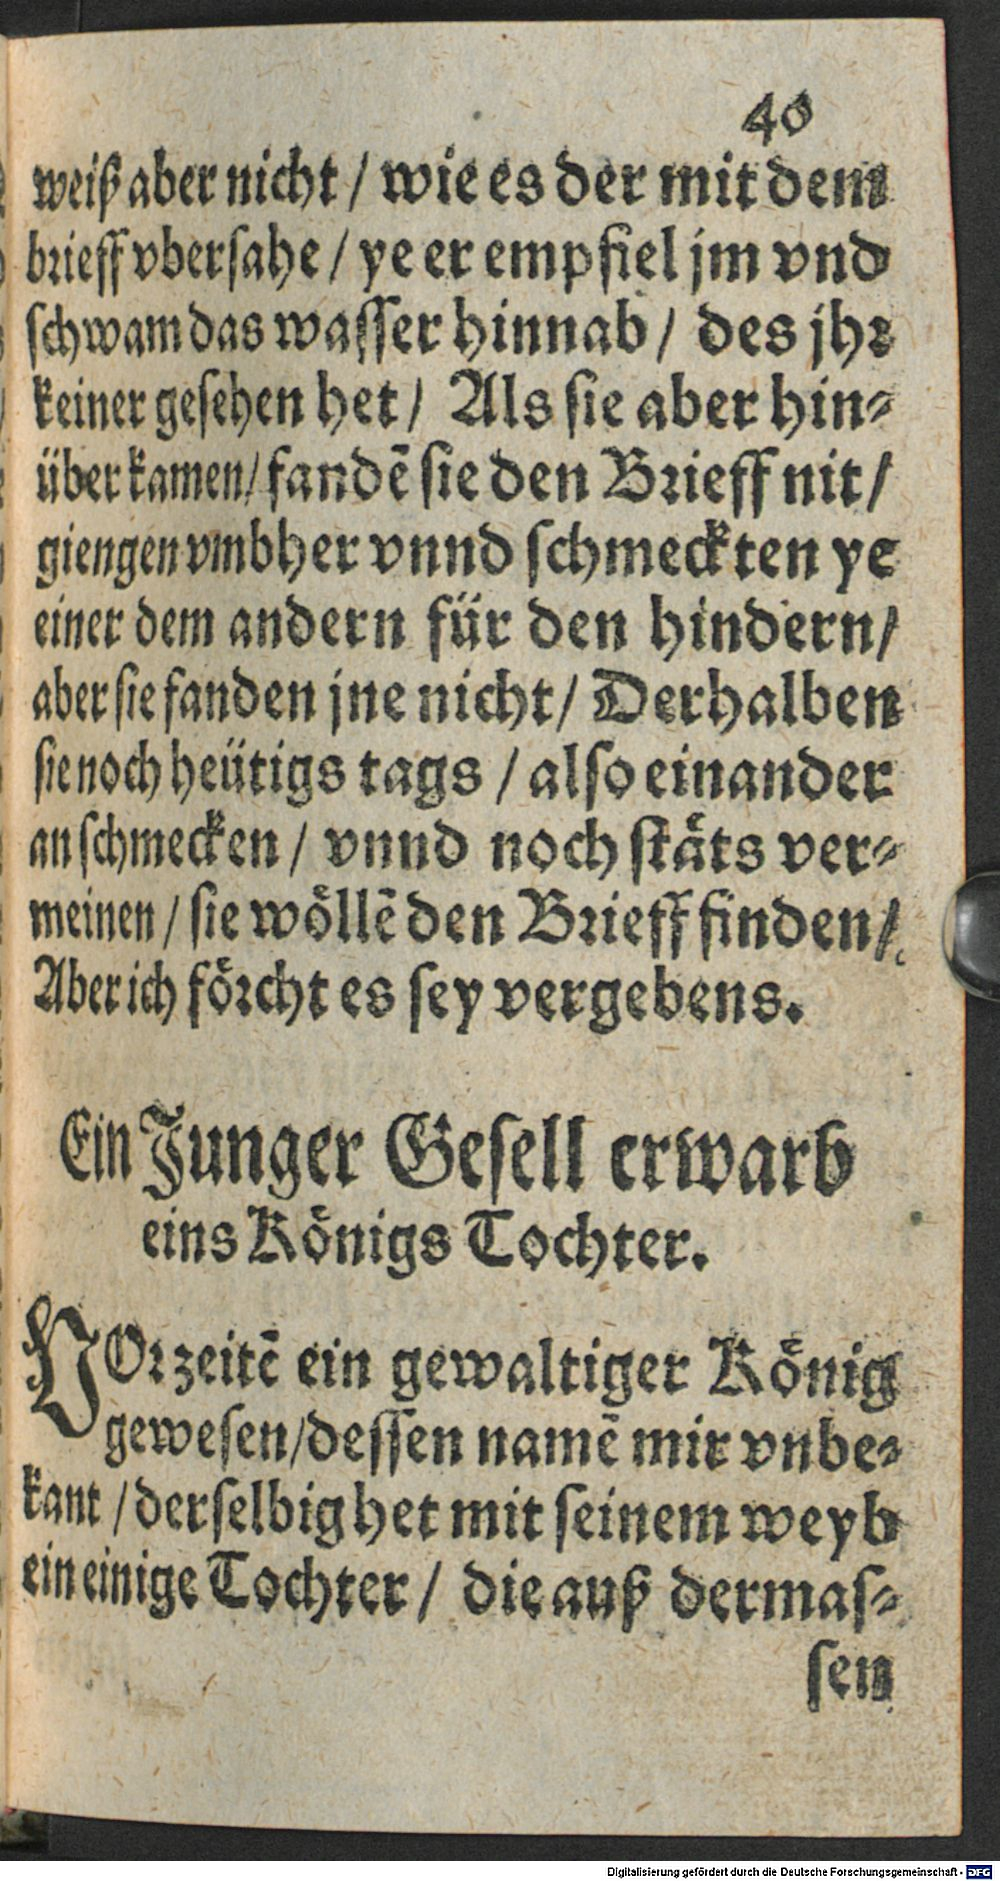 40
weiß aber nicht / wie es der mit dem
brieff vbersahe / ye er empfiel jm vnd
schwam das wasser hinnab / des jhr
keiner gesehen het / Als sie aber hin-
über kamen / fandē sie den Brieff nit /
giengen vmbher vnnd schmeckten ye
einer dem andern für den hindern /
aber sie fanden jne nicht / Derhalben
sie noch heütigs tags / also einander
an schmecken / vnnd noch stäts ver-
meinen / sie wöllē den Brieff finden /
Aber ich förcht es sey vergebens.
Ein Junger Gesell erwarb
eins Königs Tochter.
VOrzeitē ein gewaltiger König
gewesen / dessen namē mir vnbe-
kant / derselbig het mit seinem weyb
ein einige Tochter / die auß dermas-
sen
Digitalisierung gefördert durch die Deutsche Forschungsgemeinschaft - DFG